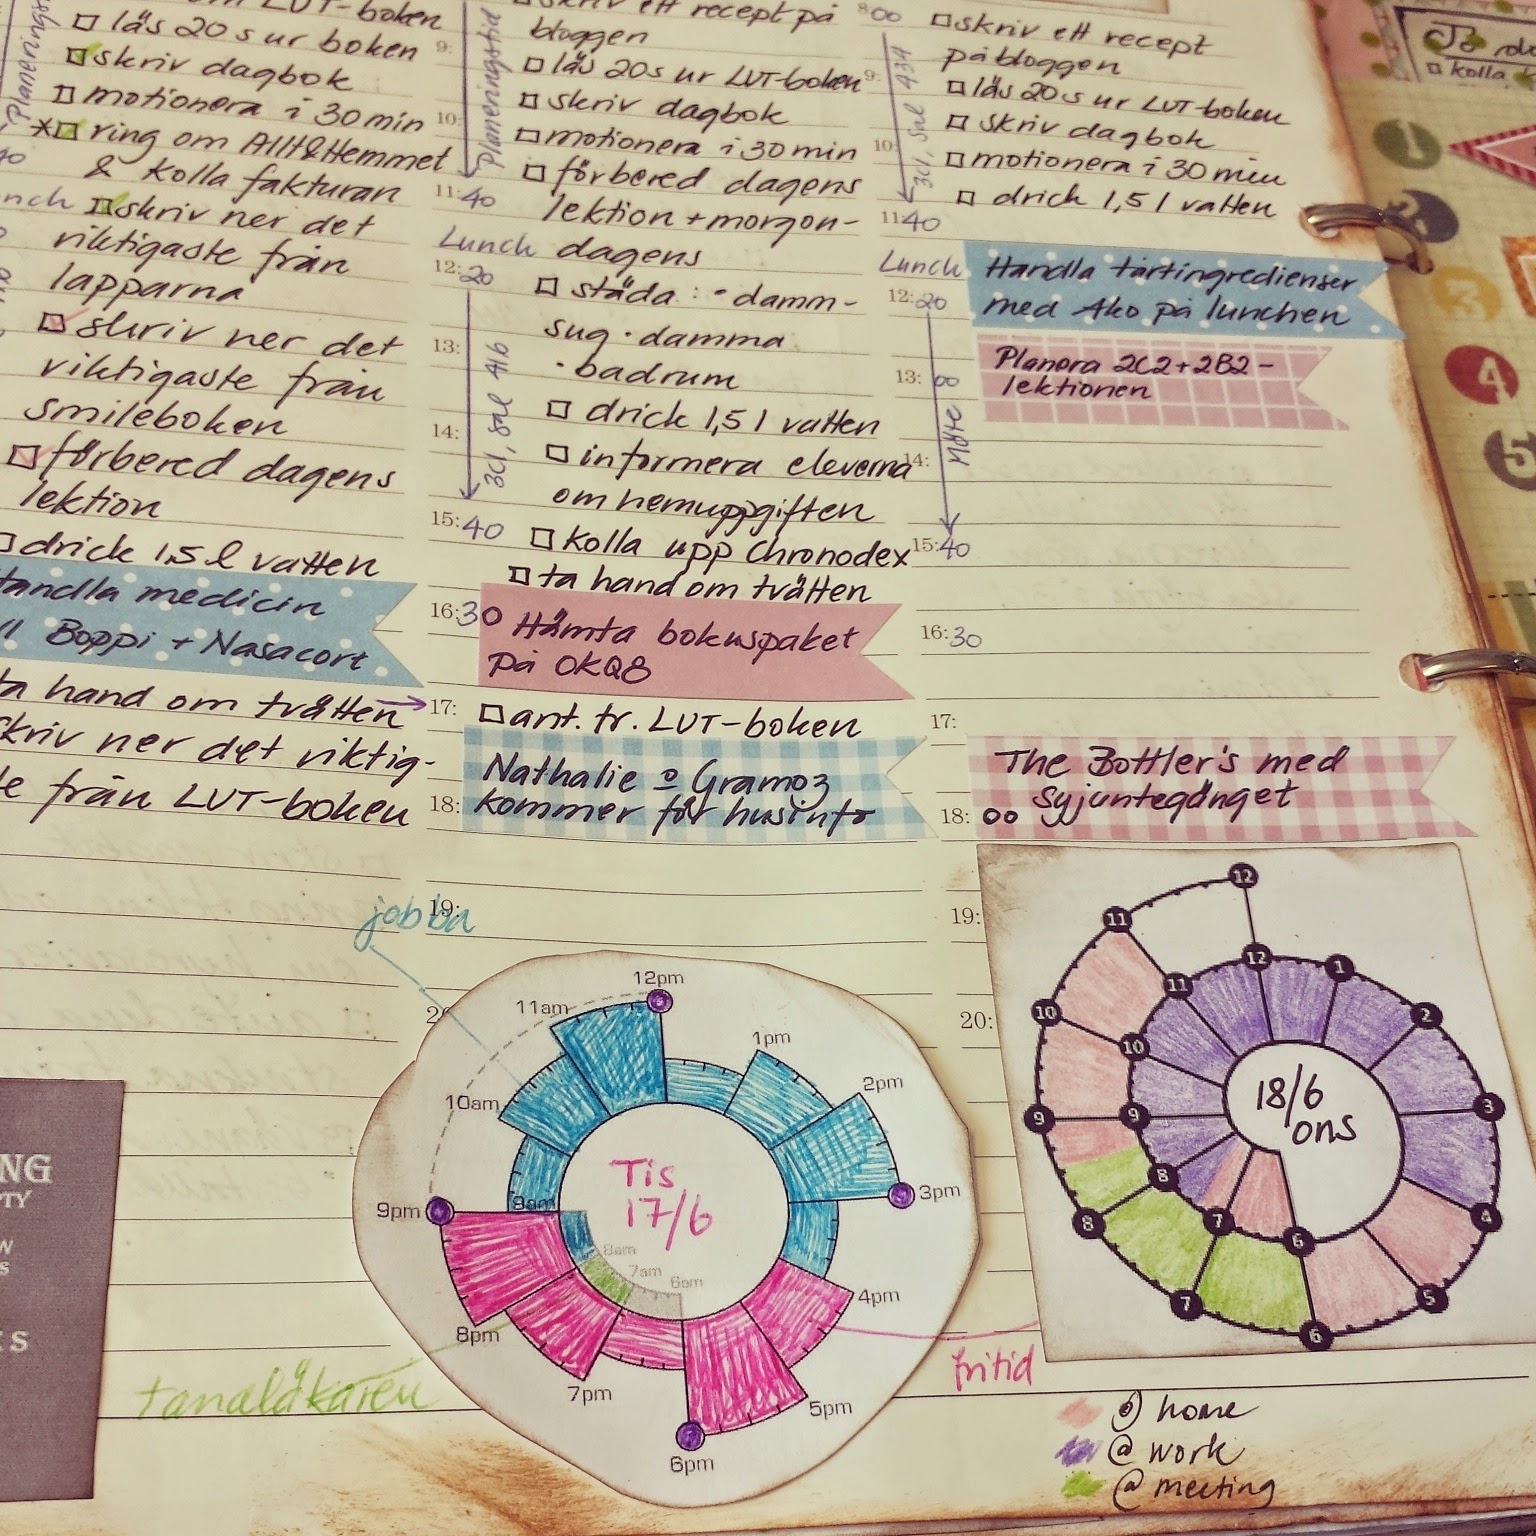 om LUT-boken
läs 20 s ur boken
skriv dagbok
motionera i 30 min
*ring om Allt&Hemmet
& kolla fakturan
skriv ner det
viktigaste från
lapparna
skriv ner det
viktigaste från
smileboken
förbered dagens
lektion
drick 1,5 l vatten
Handla medicin
Boppi + Nasacort
ta hand om tvätten →
skriv ner det viktig-
från LUT-boken
skriv ett recept på
bloggen
läs 20s ur LUT-boken
skriv dagbok
motionera i 30 min
förbered dagens
lektion + morgon-
dagens
städa: · damm-
sug · damma
· badrum
drick 1,5 l vatten
informera eleverna
om hemuppgiften
kolla upp Chronodex
ta hand om tvätten
Hämta bokuspaket
på OKQ8
ant. fr. LUT-boken
Nathalie o Gramoz
kommer för husinfo
Planeringstid
9:
10:
11:40
Lunch
12:20
13:
3C1, Sal 416
14:
15:40
16:30
17:
18:
19:
8:00
9:
3C1, Sal 434
10:
11:40
Lunch
12:20
13:
Möte
14:
15:40
16:30
17:
18:00
19:
20:
skriv ett recept
på bloggen
läs 20s ur LUT-boken
skriv dagbok
motionera i 30 min
drick 1,5 l vatten
Handla tårtingredienser
med Ako på lunchen
Planera 2C2+2B2-
lektionen
The Bottler's med
syjuntegänget
To do
kolla
1
2
3
4
5
jobba
12pm
11am
1pm
10am
2pm
9am
3pm
9pm
8am
7am
6am
4pm
8pm
7pm
5pm
6pm
Tis
17/6
tandläkaren
fritid
12
11
12
1
11
2
10
10
3
9
9
8
4
8
7
6
5
7
6
18/6
ons
@ home
@ work
@ meeting
NG
TY
W
S
KS